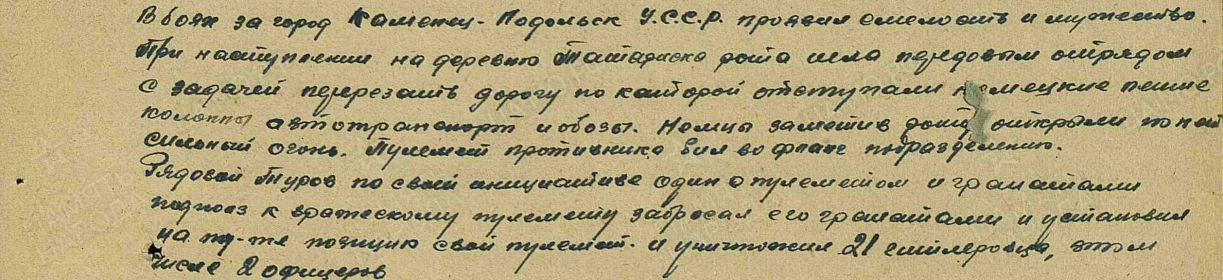 В боях за город Каменец-Подольск У.С.С.Р. проявил смелость и мужество.
При наступлении на деревню Татариска рота шла передовым отрядом
с задачей перерезать дорогу по которой отступали немецкие пешие
колонны автотранспорт и обозы. Немцы заметив роту открыли по ней
сильный огонь. Пулемет противника бил во фланг подразделению.
Рядовой Туров по своей инициативе один с пулеметом и гранатами
подполз к вражескому пулемету забросал его гранатами и установил
на ту-же позицию свой пулемет. и уничтожил 21 гитлеровца, в том
числе 2 офицеров